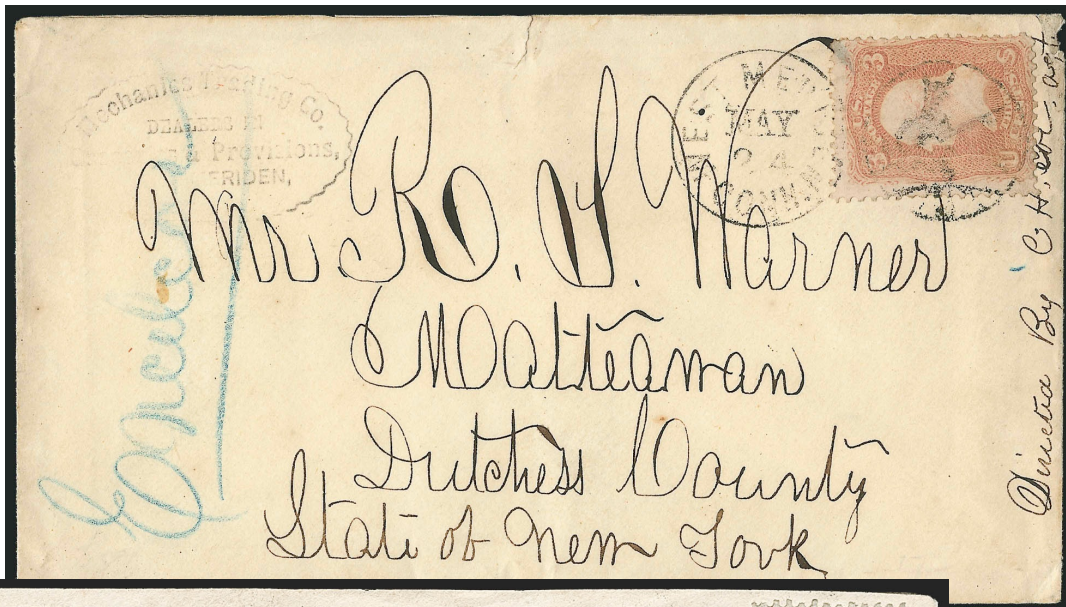 Mechanics Trading Co.
DEALERS IN
& Provisions,
MERIDEN,
WEST MERIDEN
MAY
24
CONN.
3
3
U
Mr. R. S. Warner
Matteawan
Dutchess County
State of New York
By C H